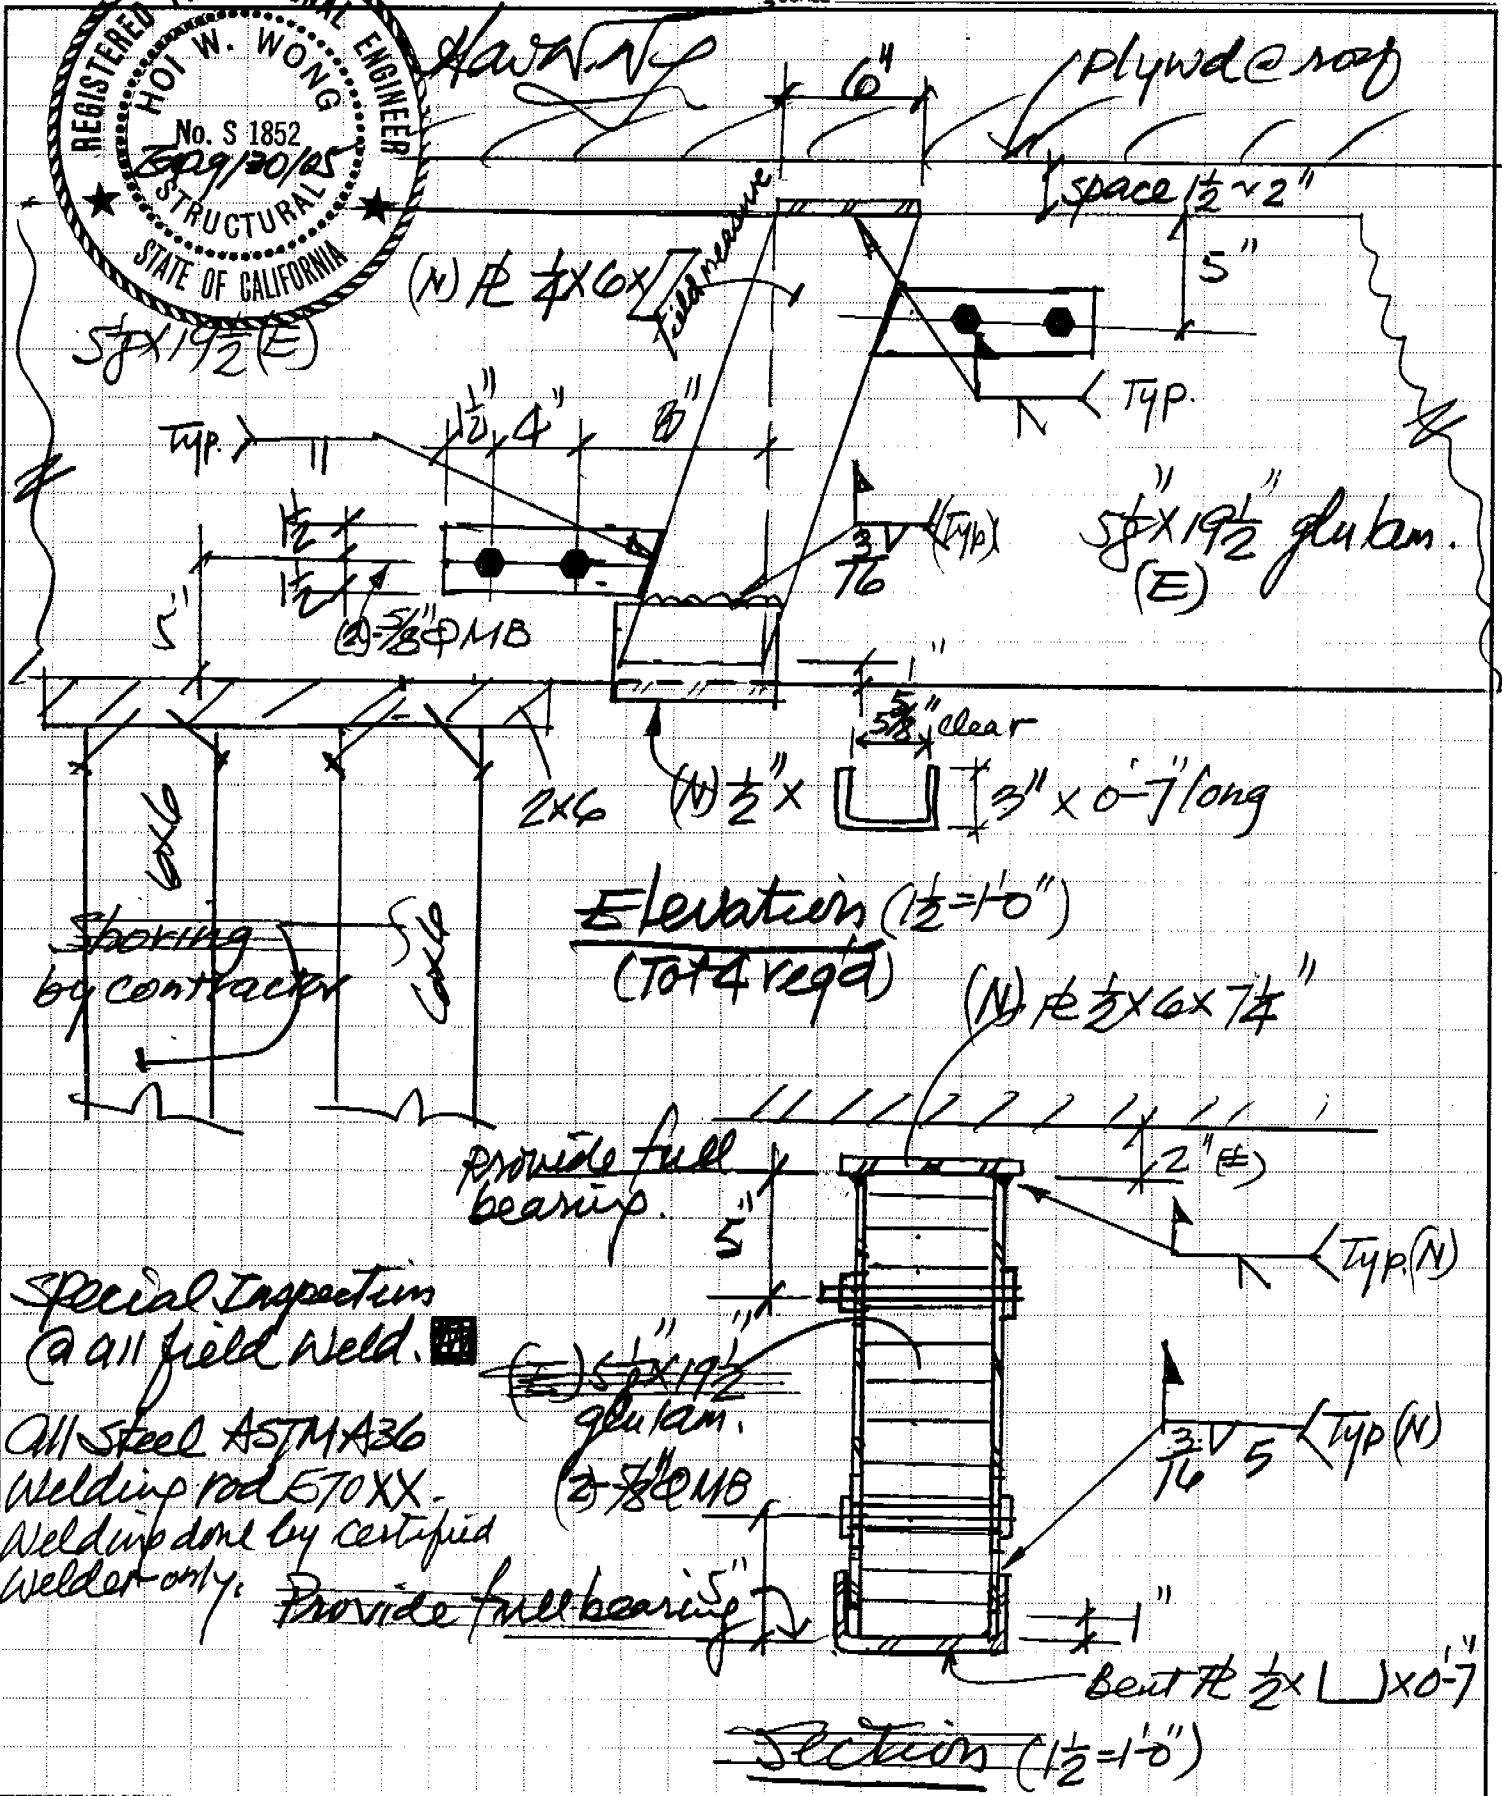 REGISTERED
ENGINEER
HOI W. WONG
No. S 1852
Exp 9/30/05
STRUCTURAL
STATE OF CALIFORNIA
6"
plywd @ roof
space 1½ ~ 2"
5"
(N) ℄ ¼ x 6 x
Field measure
5⅛ x 19½ (E)
Typ.
1½" 4" 8"
Typ.
1½
1½
5"
(2)-⅝"Φ MB
3/16
(Typ)
5⅛" x 19½" glulam.
(E)
1"
5⅝" clear
2x6
(N) ½" x
3" x 0'-7" long
6x6
6x6
Shoring
by contractor
Elevation (1½=1'-0")
(Tot 4 req'd)
(N) ℄ ½ x 6 x 7¼"
Provide full
bearing.
2" (E)
5"
Typ. (N)
Special Inspection
@ all field weld.
(E) 5⅛" x 19½"
glulam.
All steel ASTM A36
Welding rod E70XX.
Welding done by certified
welder only.
(2)-⅝"Φ MB
3/16 5
Typ (N)
Provide full bearing
5"
1"
Bent ℄ ½ x x 0'-7"
Section (1½=1'-0")